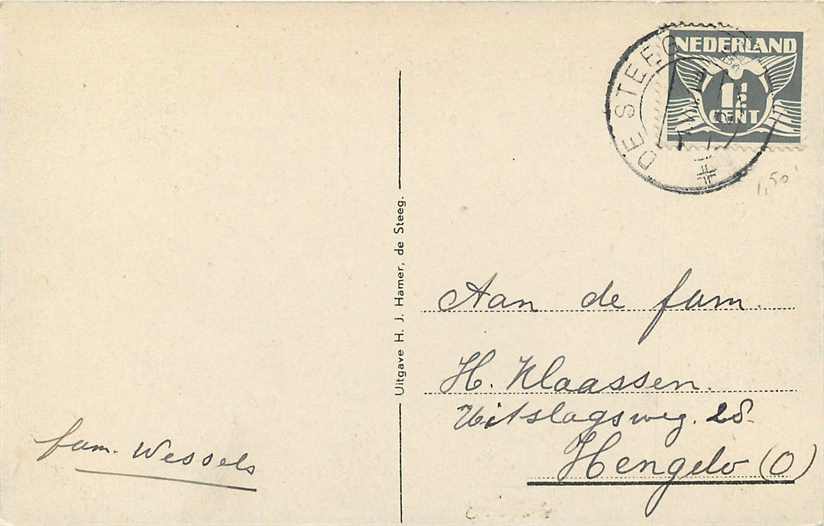 NEDERLAND
1½
CENT
DE STEEG
1,50
Uitgave H. J. Hamer, de Steeg.
Aan de fam.
H. Klaassen.
Uitslagsweg. 28.
Hengelo (O)
fam. Wessels